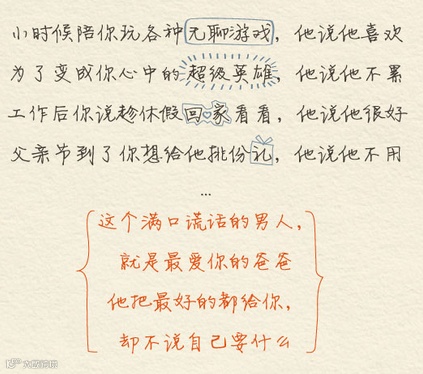 小时候陪你玩各种无聊游戏，他说他喜欢
为了变成你心中的超级英雄，他说他不累
工作后你说趁休假回家看看，他说他很好
父亲节到了你想给他挑份礼，他说他不用
...
这个满口谎话的男人，
就是最爱你的爸爸
他把最好的都给你，
却不说自己要什么